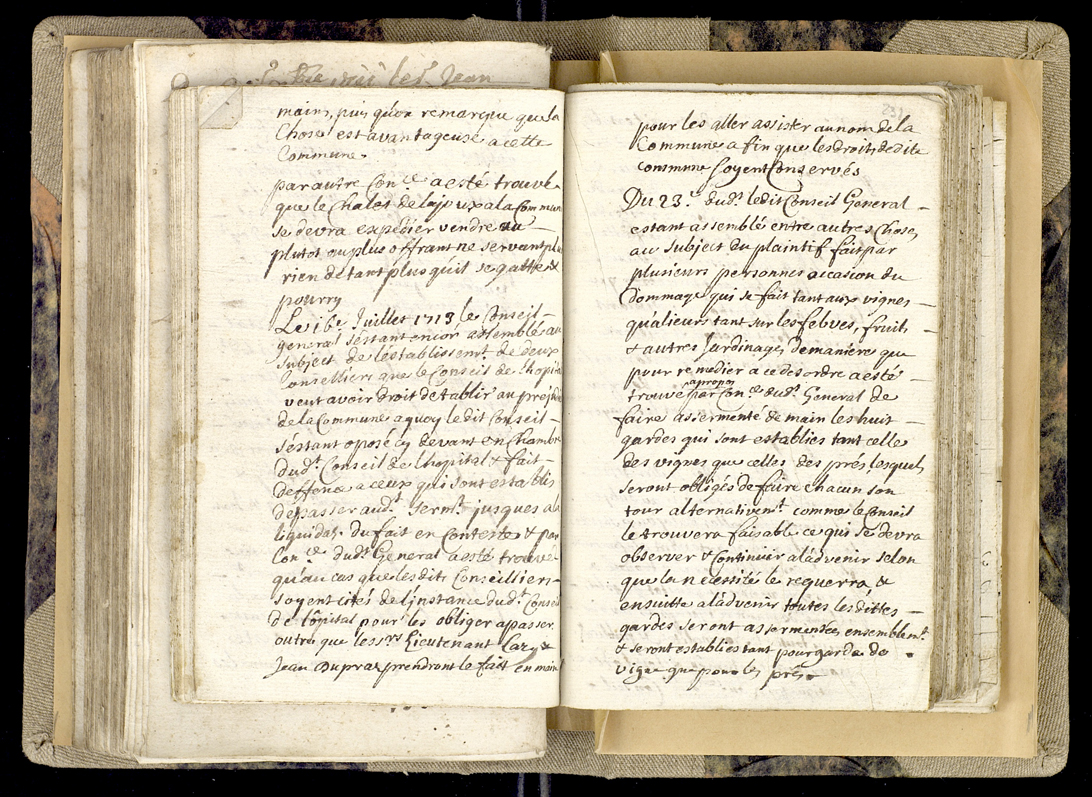 mains, puis qu'on remarque que la
Chose est avantageuse a cette
Commune.
par autre Con.ce a esté trouvé
que le Chalet de la joux a la Commune
se devra expedier vendre au
plutot au plus offrant ne servant plus
rien detant plus qu'il se gatte &
pourry
Le 16.e Juillet 1713 le Conseil
general s'estant encor assemblé au
subject de l'establissem.t de deux
Conseilliers que le Conseil de l'hopital
veut avoir droit d'etablir au prejudice
de la Commune a quoy ledit Conseil
s'estant oposé cy devant en Chambre
dud.t Conseil de l'hopital & fait
deffence a ceux qui sont establis
de passer aud.t serm.t jusques a la
liquida.on du fait en Conteste & par
Con.ce dud.t General a esté trouvé
qu'au cas que lesdits Conseilliers
soyent cités de l'instance dud.t Conseil
de l'ôpital pour les obliger a passer
outre que les s.rs Lieutenant &
Jean Dupraz prendront le fait en main
pour les aller assister au nom de la
Commune a fin que les droits de dite
commune soyent Conservés
Du 23.e dud.t ledit Conseil General
estant assemblé entre autres Choses
au subject du plaintif fait par
plusieurs personnes a casion du
dommage qui se fait tant aux vignes
qu'alieurs tant sur les febves, fruits
& autres jardinages de maniere que
pour remedier a ce desordre a esté
trouvé a propos par Con.ce dud.t General de
faire assermenté de main les huit
gardes qui sont establies tant celle
des vignes que celles des prés lesquels
seront obligés de faire chacun son
tour alternativem.t comme le Conseil
le trouvera faisable ce qui se devra
observer & Continuer a l'advenir selon
que la necessité le requerra, &
ensuitte a l'advenir toutes les dittes
gardes seront assermentées ensemblem.t
& seront establies tant pour garde de
vigne que pour les prés